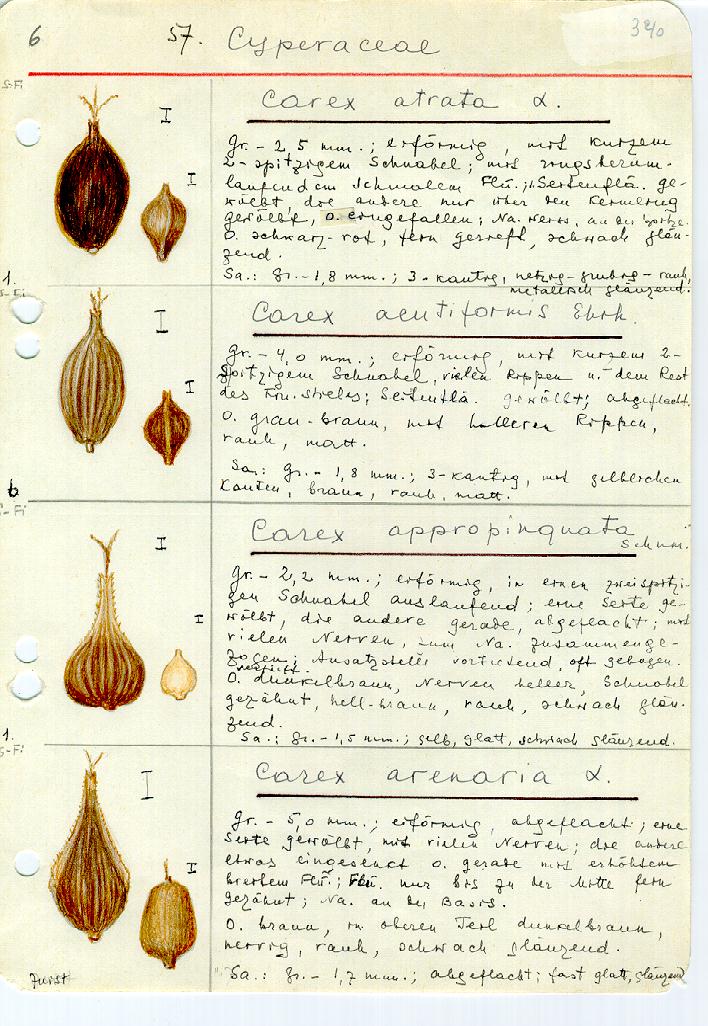 6 57. Cyperaceae 340
S-Fi
Carex atrata L.
Gr. - 2,5 mm.; eiförmig, mit kurzem
2-spitzigem Schnabel; mit ringsherum-
laufendem schmalem Flü.; 1 Seitenflä. ge-
wölbt, die andere nur über den Kernling
gewölbt, o. eingefallen; Na. an der
O. schwarz-rot, fein gerieft, schwach glän-
zend.
1. Sa.: Gr. - 1,8 mm.; 3-kantig, netzig-grubig-rauh,
metallisch glänzend.
S-Fi
Carex acutiformis Ehrh.
Gr. - 4,0 mm.; eiförmig, mit kurzem 2-
spitzigem Schnabel, vielen Rippen u. dem Rest
des Seitenflä. gewölbt; abgeflacht.
O. grau-braun, mit helleren Rippen,
rauh, matt.
Sa.: Gr. - 1,8 mm.; 3-kantig, mit gelblichen
b Kanten, braun, rauh, matt.
S-Fi
Carex appropinquata
Schum.
Gr. - 2,2 mm.; eiförmig, in einen zweispitzi-
gen Schnabel auslaufend; eine Seite ge-
wölbt, die andere gerade, abgeflacht; mit
vielen Nerven, zum Na. zusammenge-
zogen; Ansatzstelle oft gebogen.
O. dunkelbraun, Nerven heller, Schnabel
gezähnt, hell-braun, rauh, schwach glän-
zend.
1. Sa.: Gr. - 1,5 mm.; gelb, glatt, schwach glänzend.
S-Fi
Carex arenaria L.
Gr. - 5,0 mm.; eiförmig, abgeflacht; eine
Seite gewölbt, mit vielen Nerven; die andere
etwas eingesenkt o. gerade mit erhöhtem
breitem Flü.; Flü. nur bis zu der Mitte fein
gezähnt; Na. an der Basis.
O. braun, im oberen Teil dunkelbraun,
nervig, rauh, schwach glänzend.
Sa.: Gr. - 1,7 mm.; abgeflacht; fast glatt, glänzend